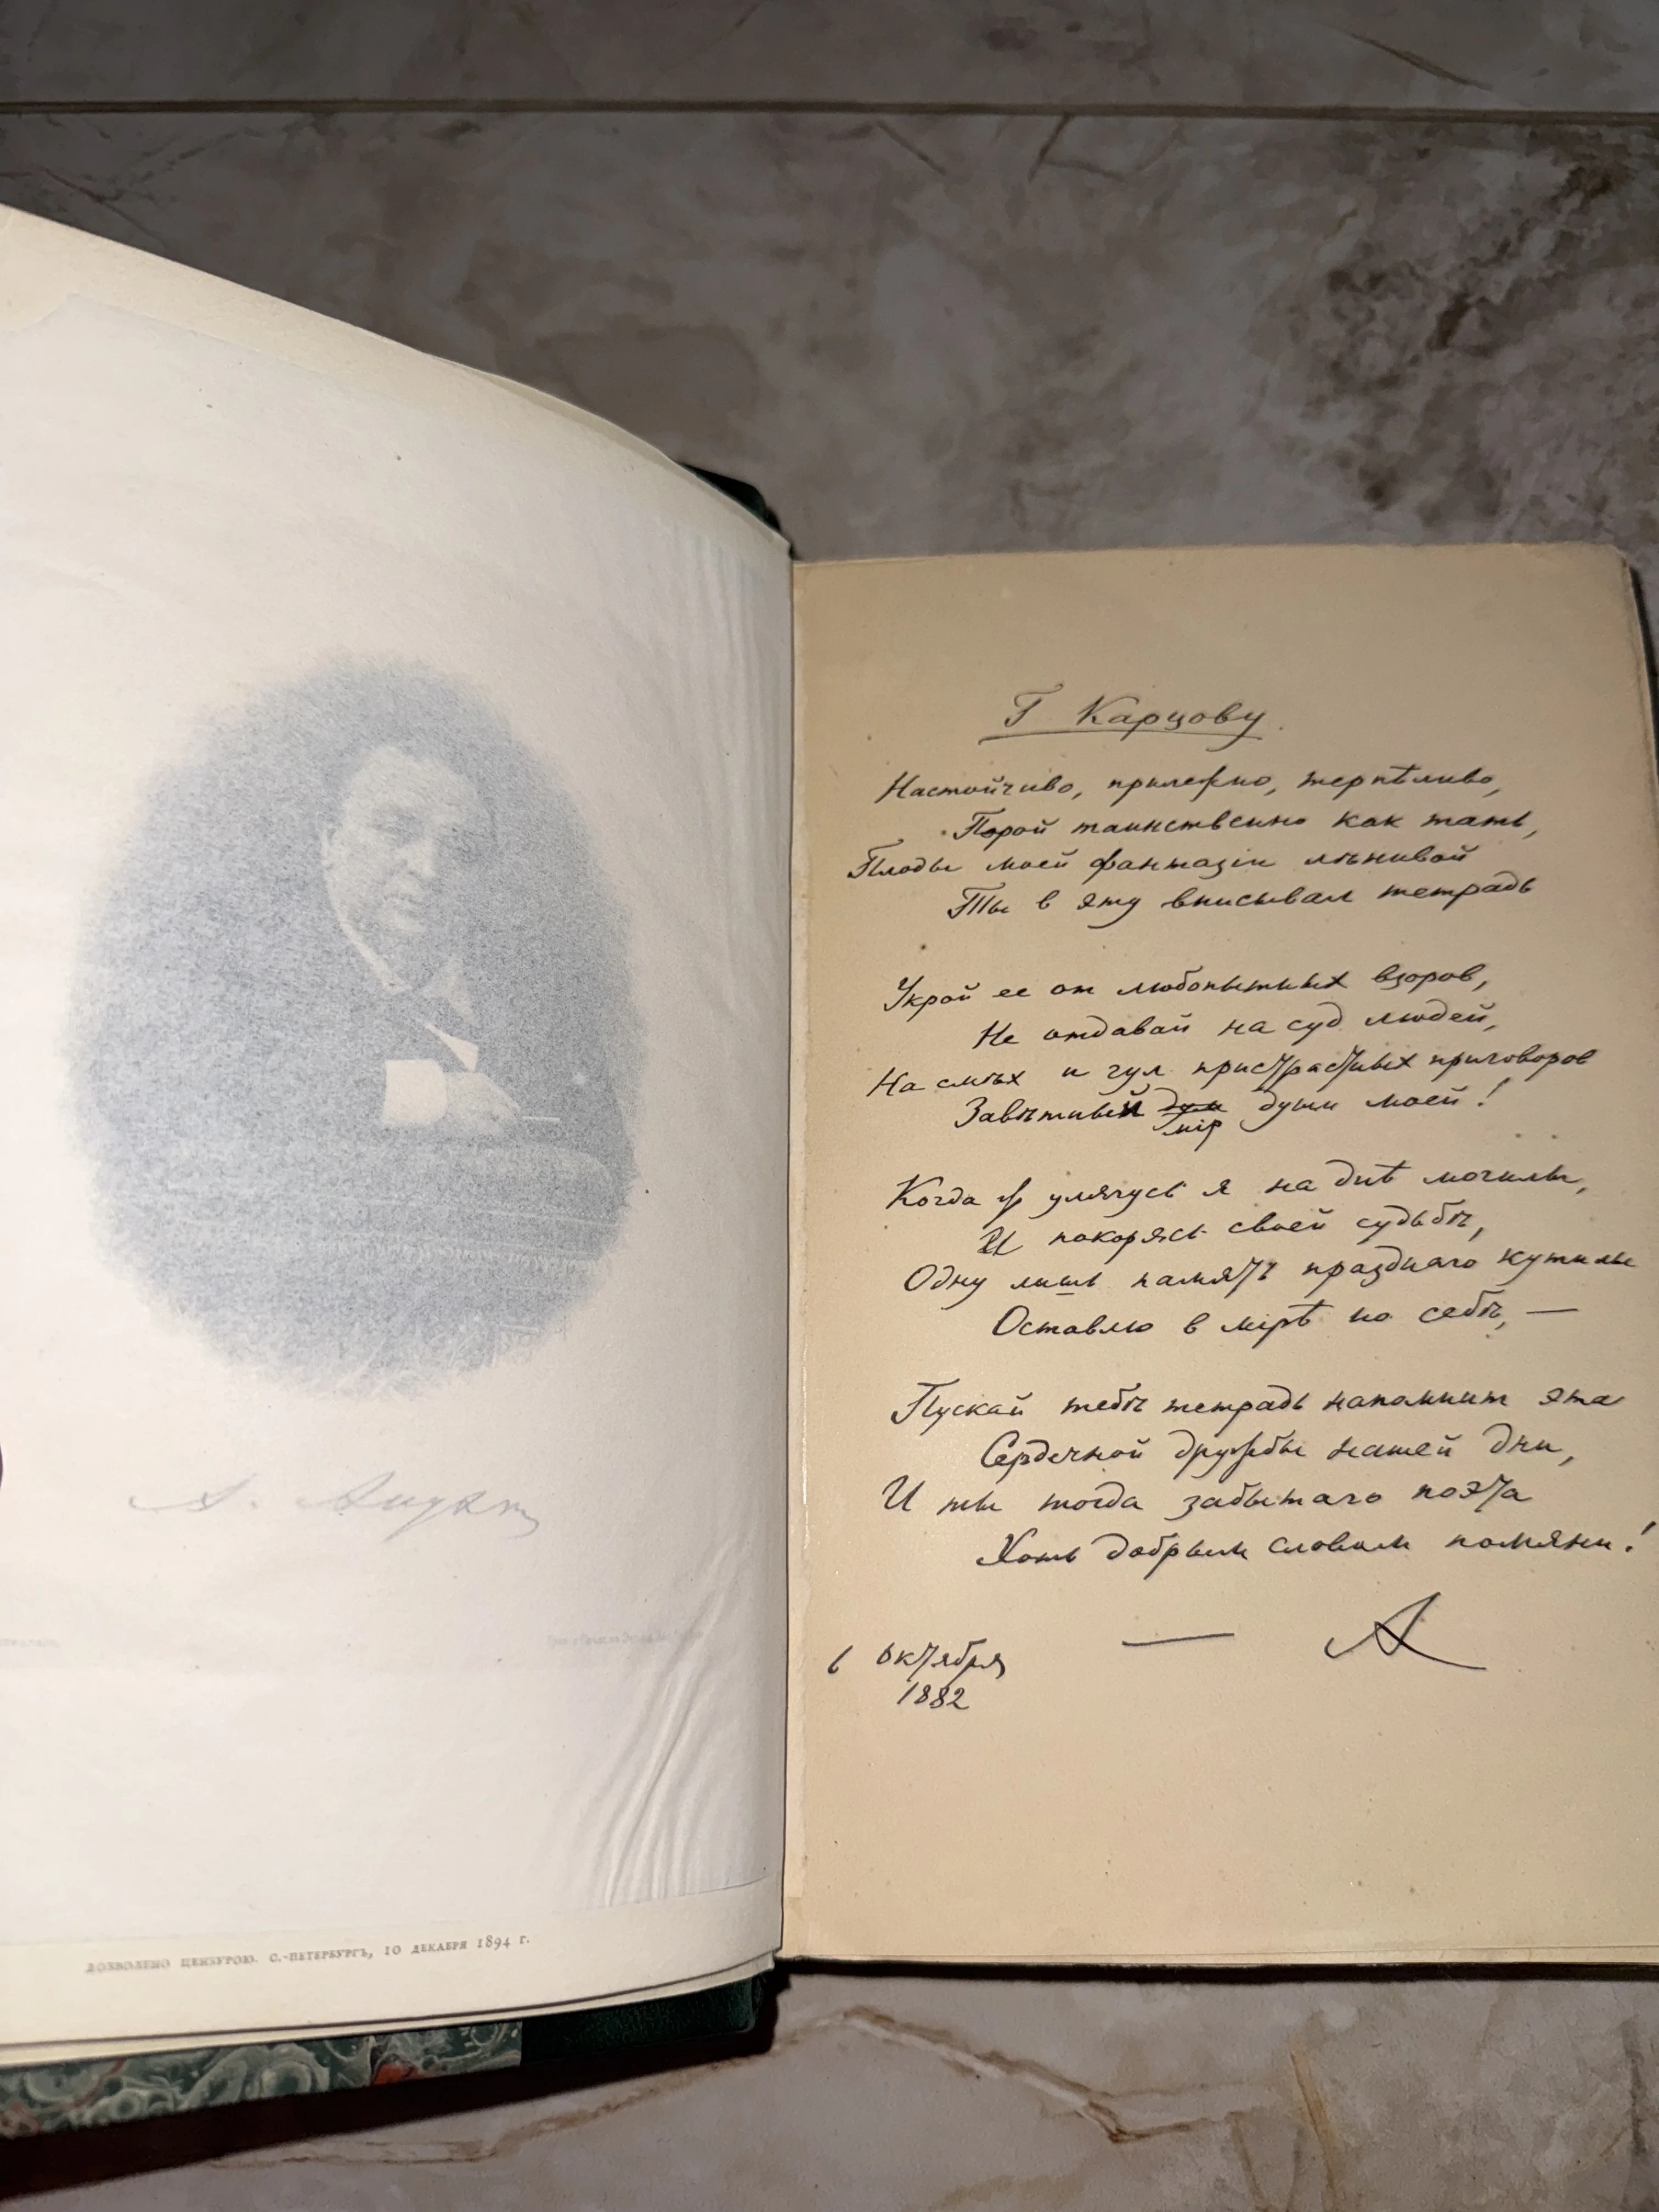 А. Апухтин
ДОЗВОЛЕНО ЦЕНЗУРОЮ. С.-ПЕТЕРБУРГЪ, 10 ДЕКАБРЯ 1894 г.
Г Карцову.
Настойчиво, прилежно, терпѣливо,
Порой таинственно как тать,
Плоды моей фантазiи лѣнивой
Ты в эту вписывал тетрадь
Укрой ее от любопытных взоров,
Не отдавай на суд людей,
На смѣх и гул пристрастных приговоров
Завѣтный души моей!
мiр
Когда ж улягусь я на днѣ могилы,
И покорясь своей судьбѣ,
Одну лишь память празднаго кутилы
Оставлю в мiрѣ по себѣ, —
Пускай тебѣ тетрадь напомнит эта
Сердечной дружбы нашей дни,
И ты тогда забытаго поэта
Хоть добрым словом помяни!
— А
6 октября
1882